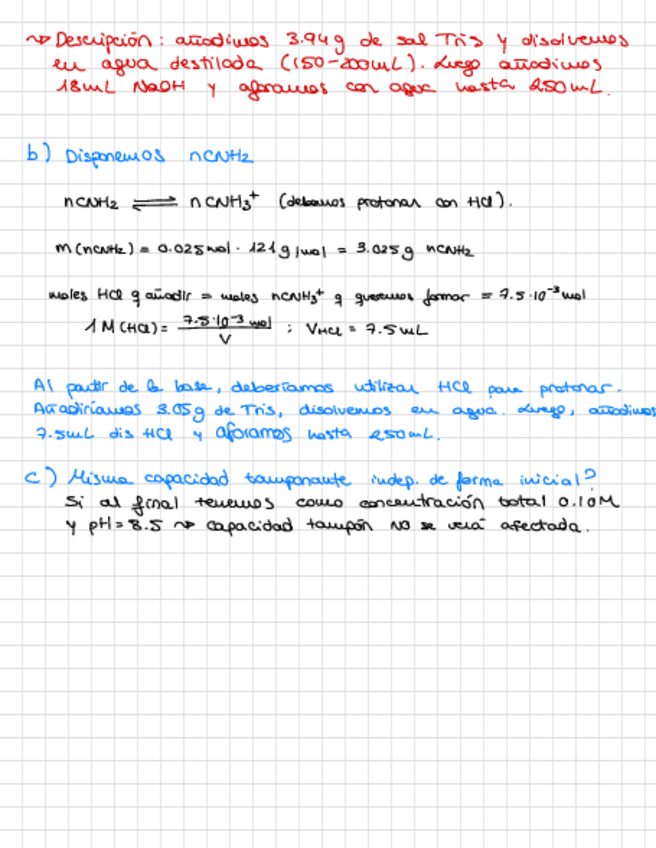 ~> Descripción: añadimos 3.94g de sal Tris y disolvemos
en agua destilada (150-200mL). Luego añadimos
18mL NaOH y aforamos con agua hasta 250mL.
b) Disponemos nCNH2
nCNH2 ⇌ nCNH3+ (debemos protonar con HCl).
m(nCNH2) = 0.025mol · 121g/mol = 3.025g nCNH2
moles HCl q añadir = moles nCNH3+ q queremos formar = 7.5·10-3 mol
1M(HCl) = 7.5·10-3 mol / V ; VHCl = 7.5mL
Al partir de la base, deberíamos utilizar HCl para protonar.
Añadiríamos 3.05g de Tris, disolvemos en agua. Luego, añadimos
7.5mL dis HCl y aforamos hasta 250mL.
c) Misma capacidad tamponante indep. de forma inicial?
Si al final tenemos como concentración total 0.10M
y pH=8.5 ~> capacidad tampón NO se verá afectada.